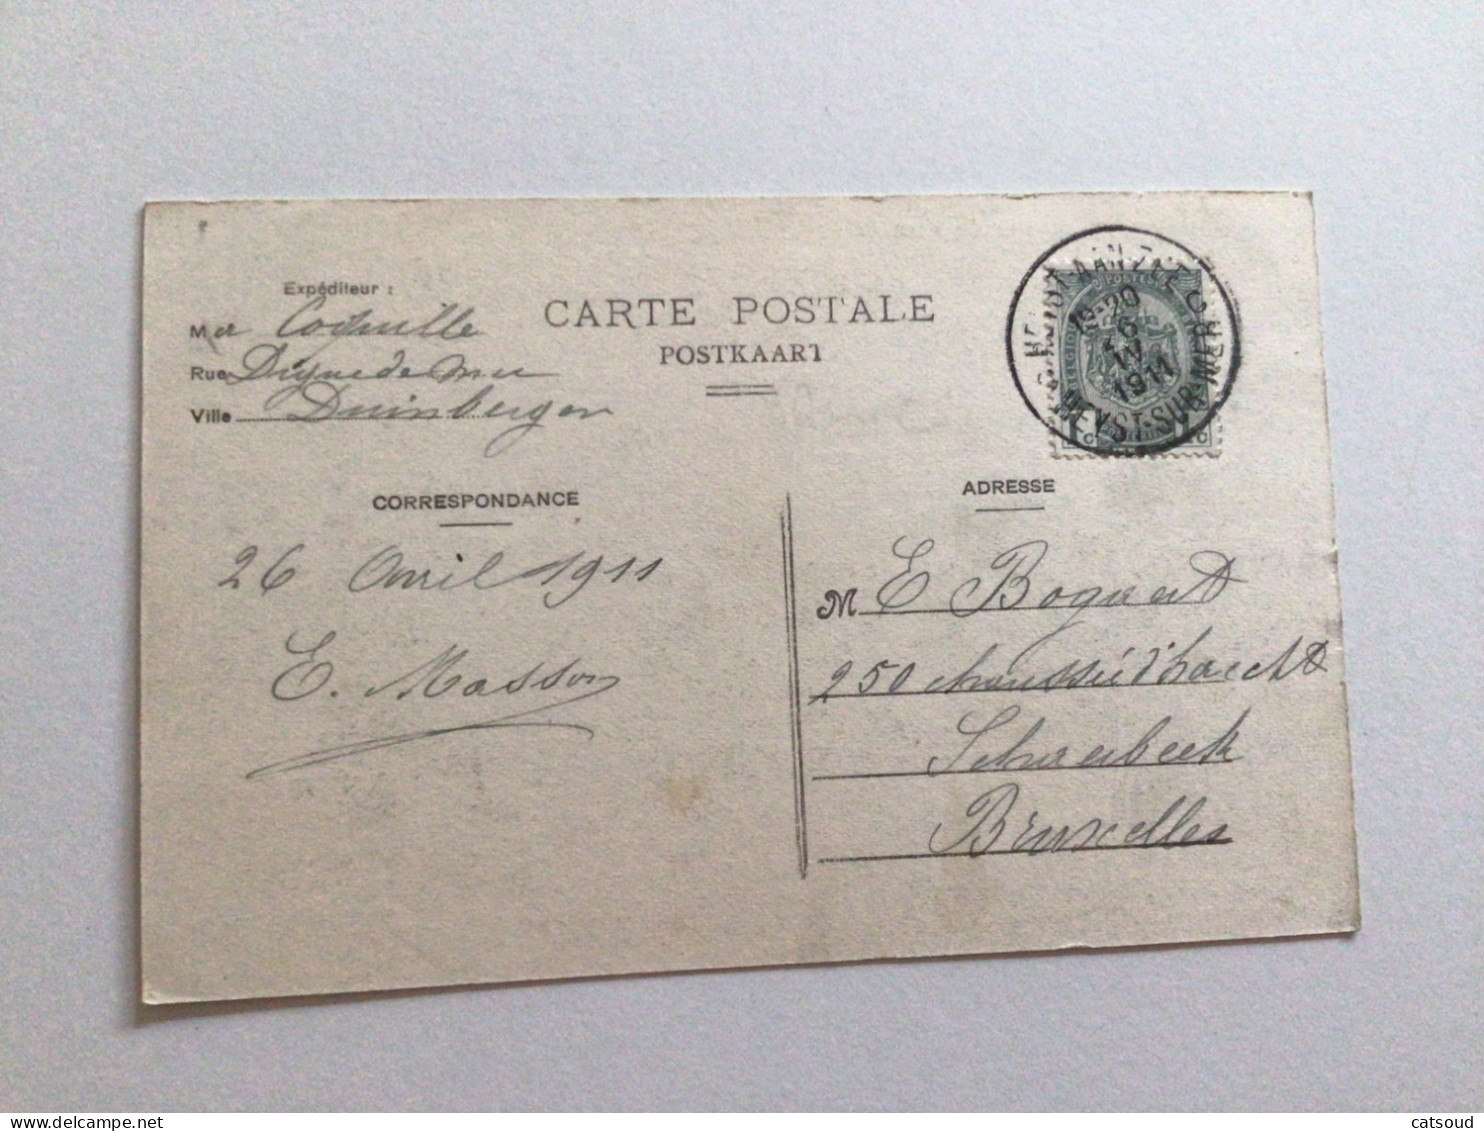 Expéditeur :
Mer Coquille
Rue Digue de mer
Ville Duinbergen
CARTE POSTALE
POSTKAART
HEYST-AAN-ZEE
19-20
26
IV
1911
HEYST-SUR-MER
CORRESPONDANCE
26 Avril 1911
E. Masson
ADRESSE
M E Bogaert
250 chaussée d'haecht
Schaerbeek
Bruxelles
catsoud
www.delcampe.net